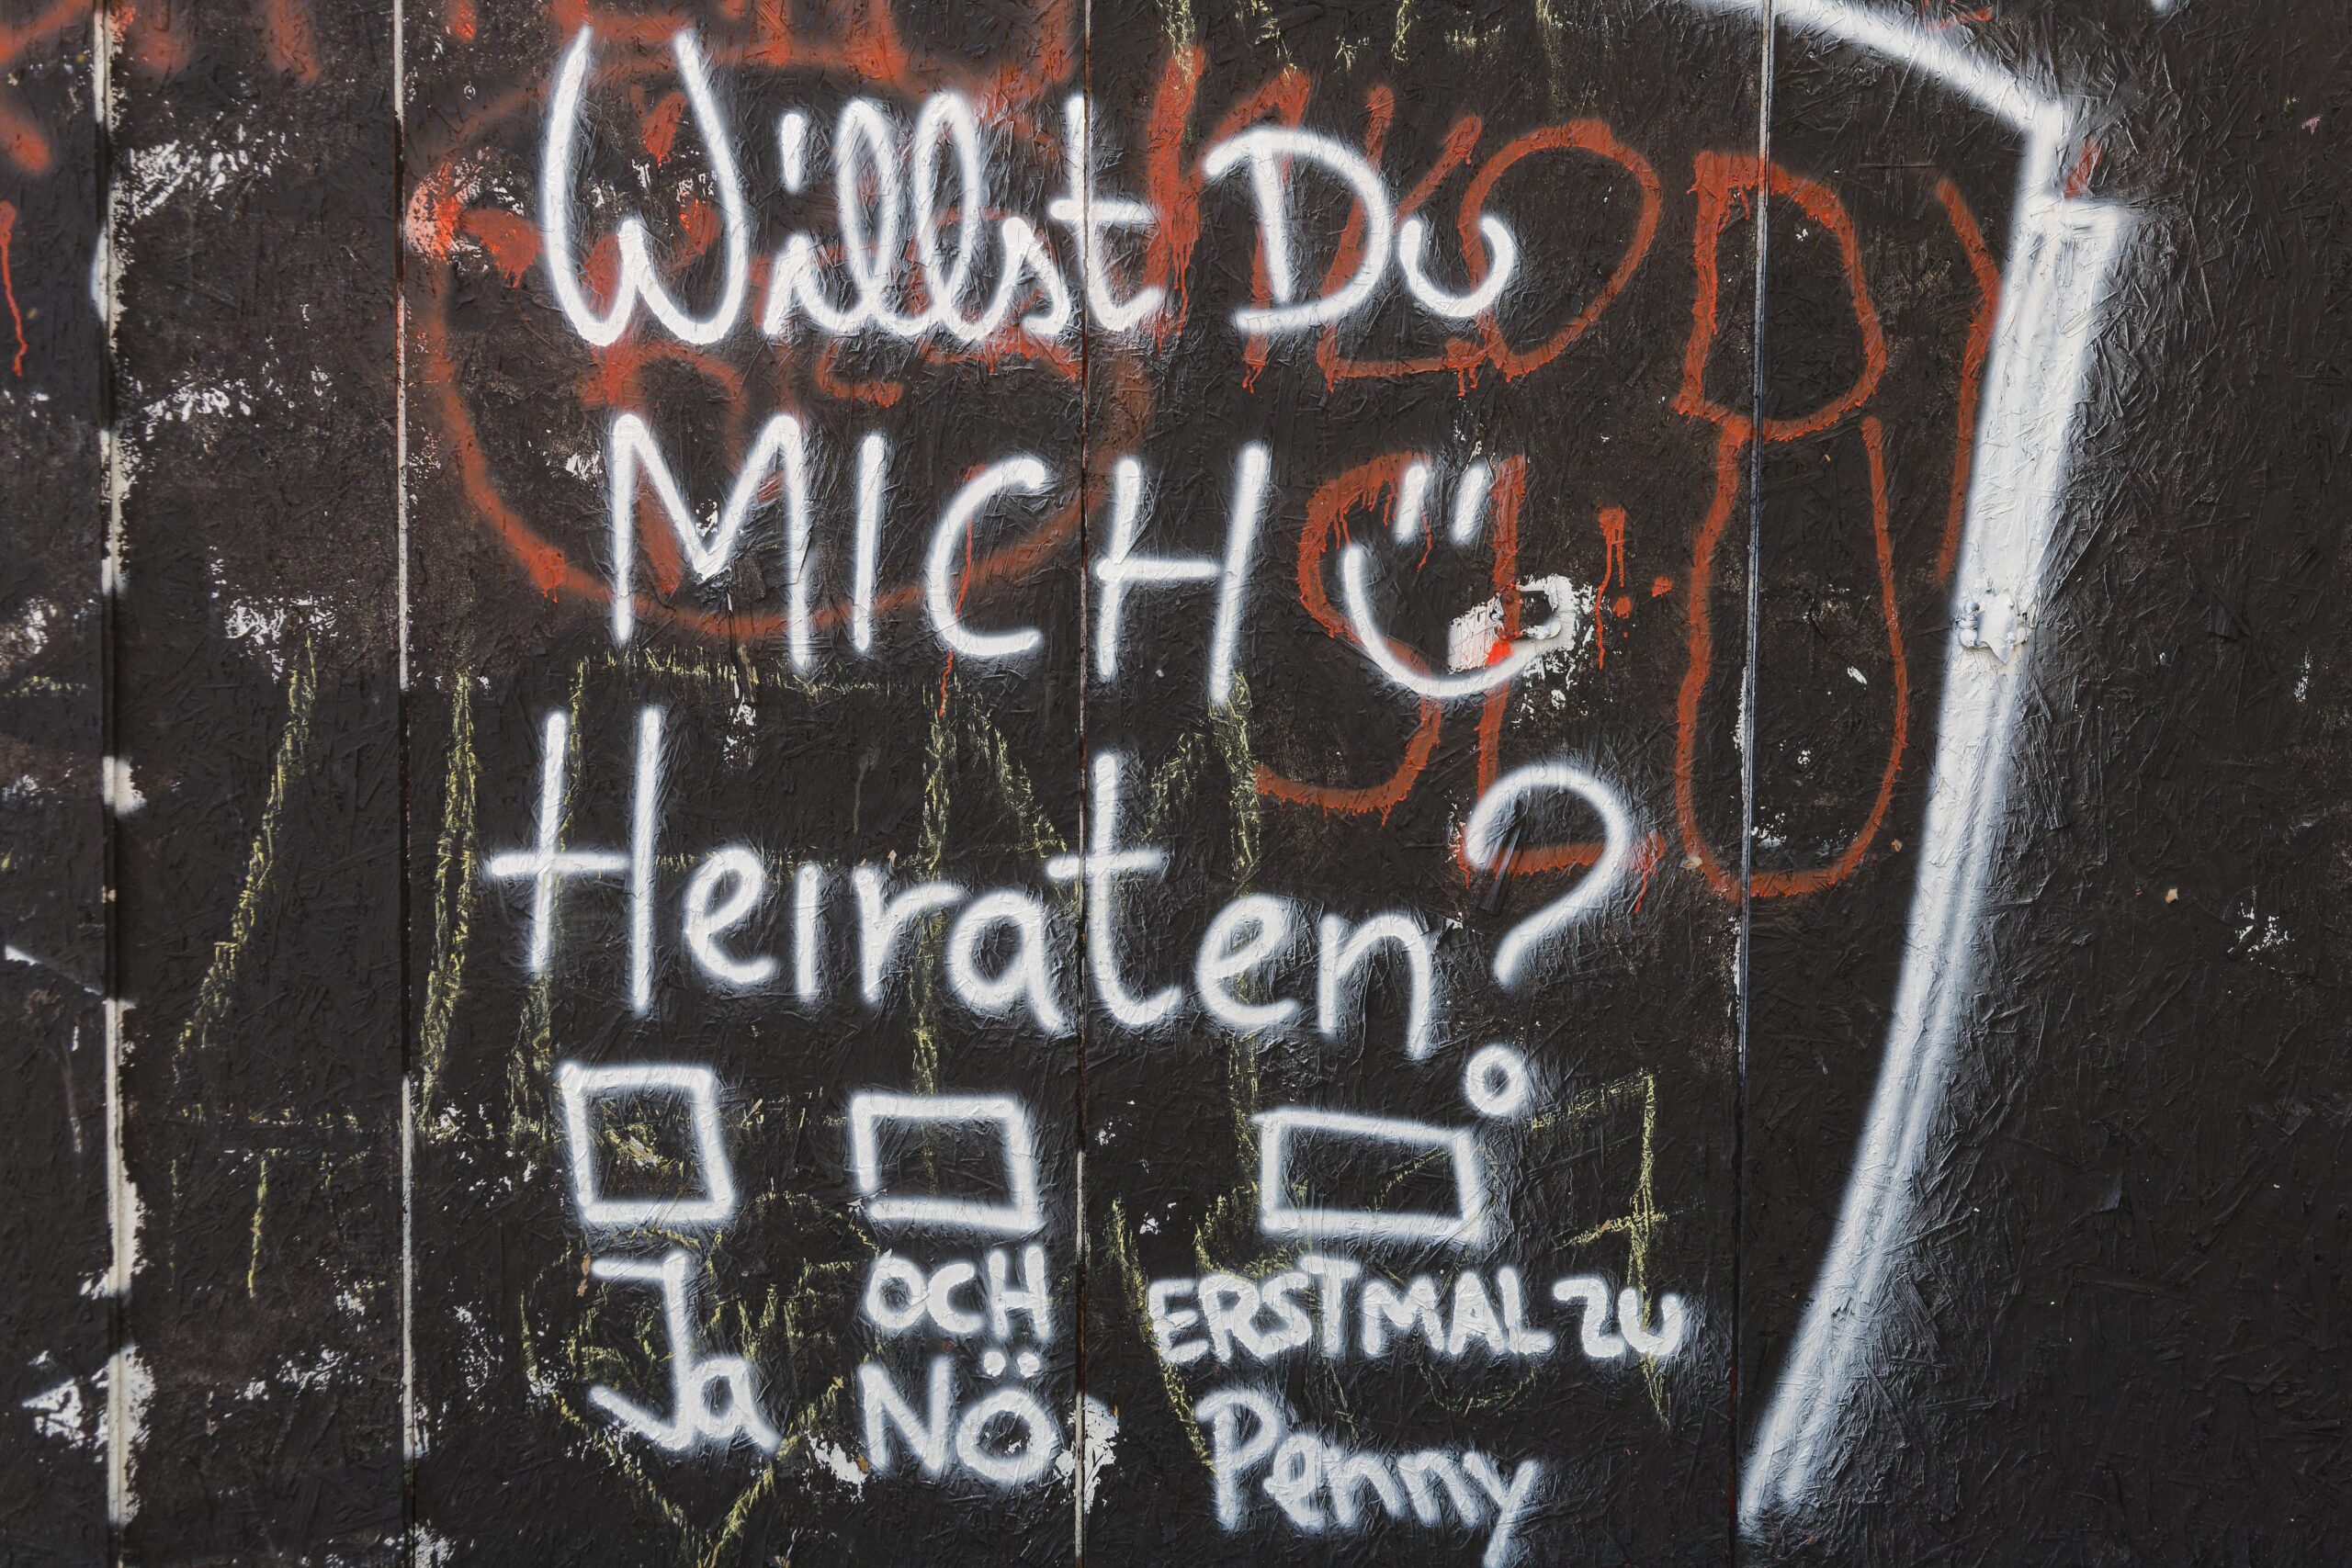 Willst Du
MICH
Heiraten?
Ja
OCH NÖ
ERSTMAL ZU Penny